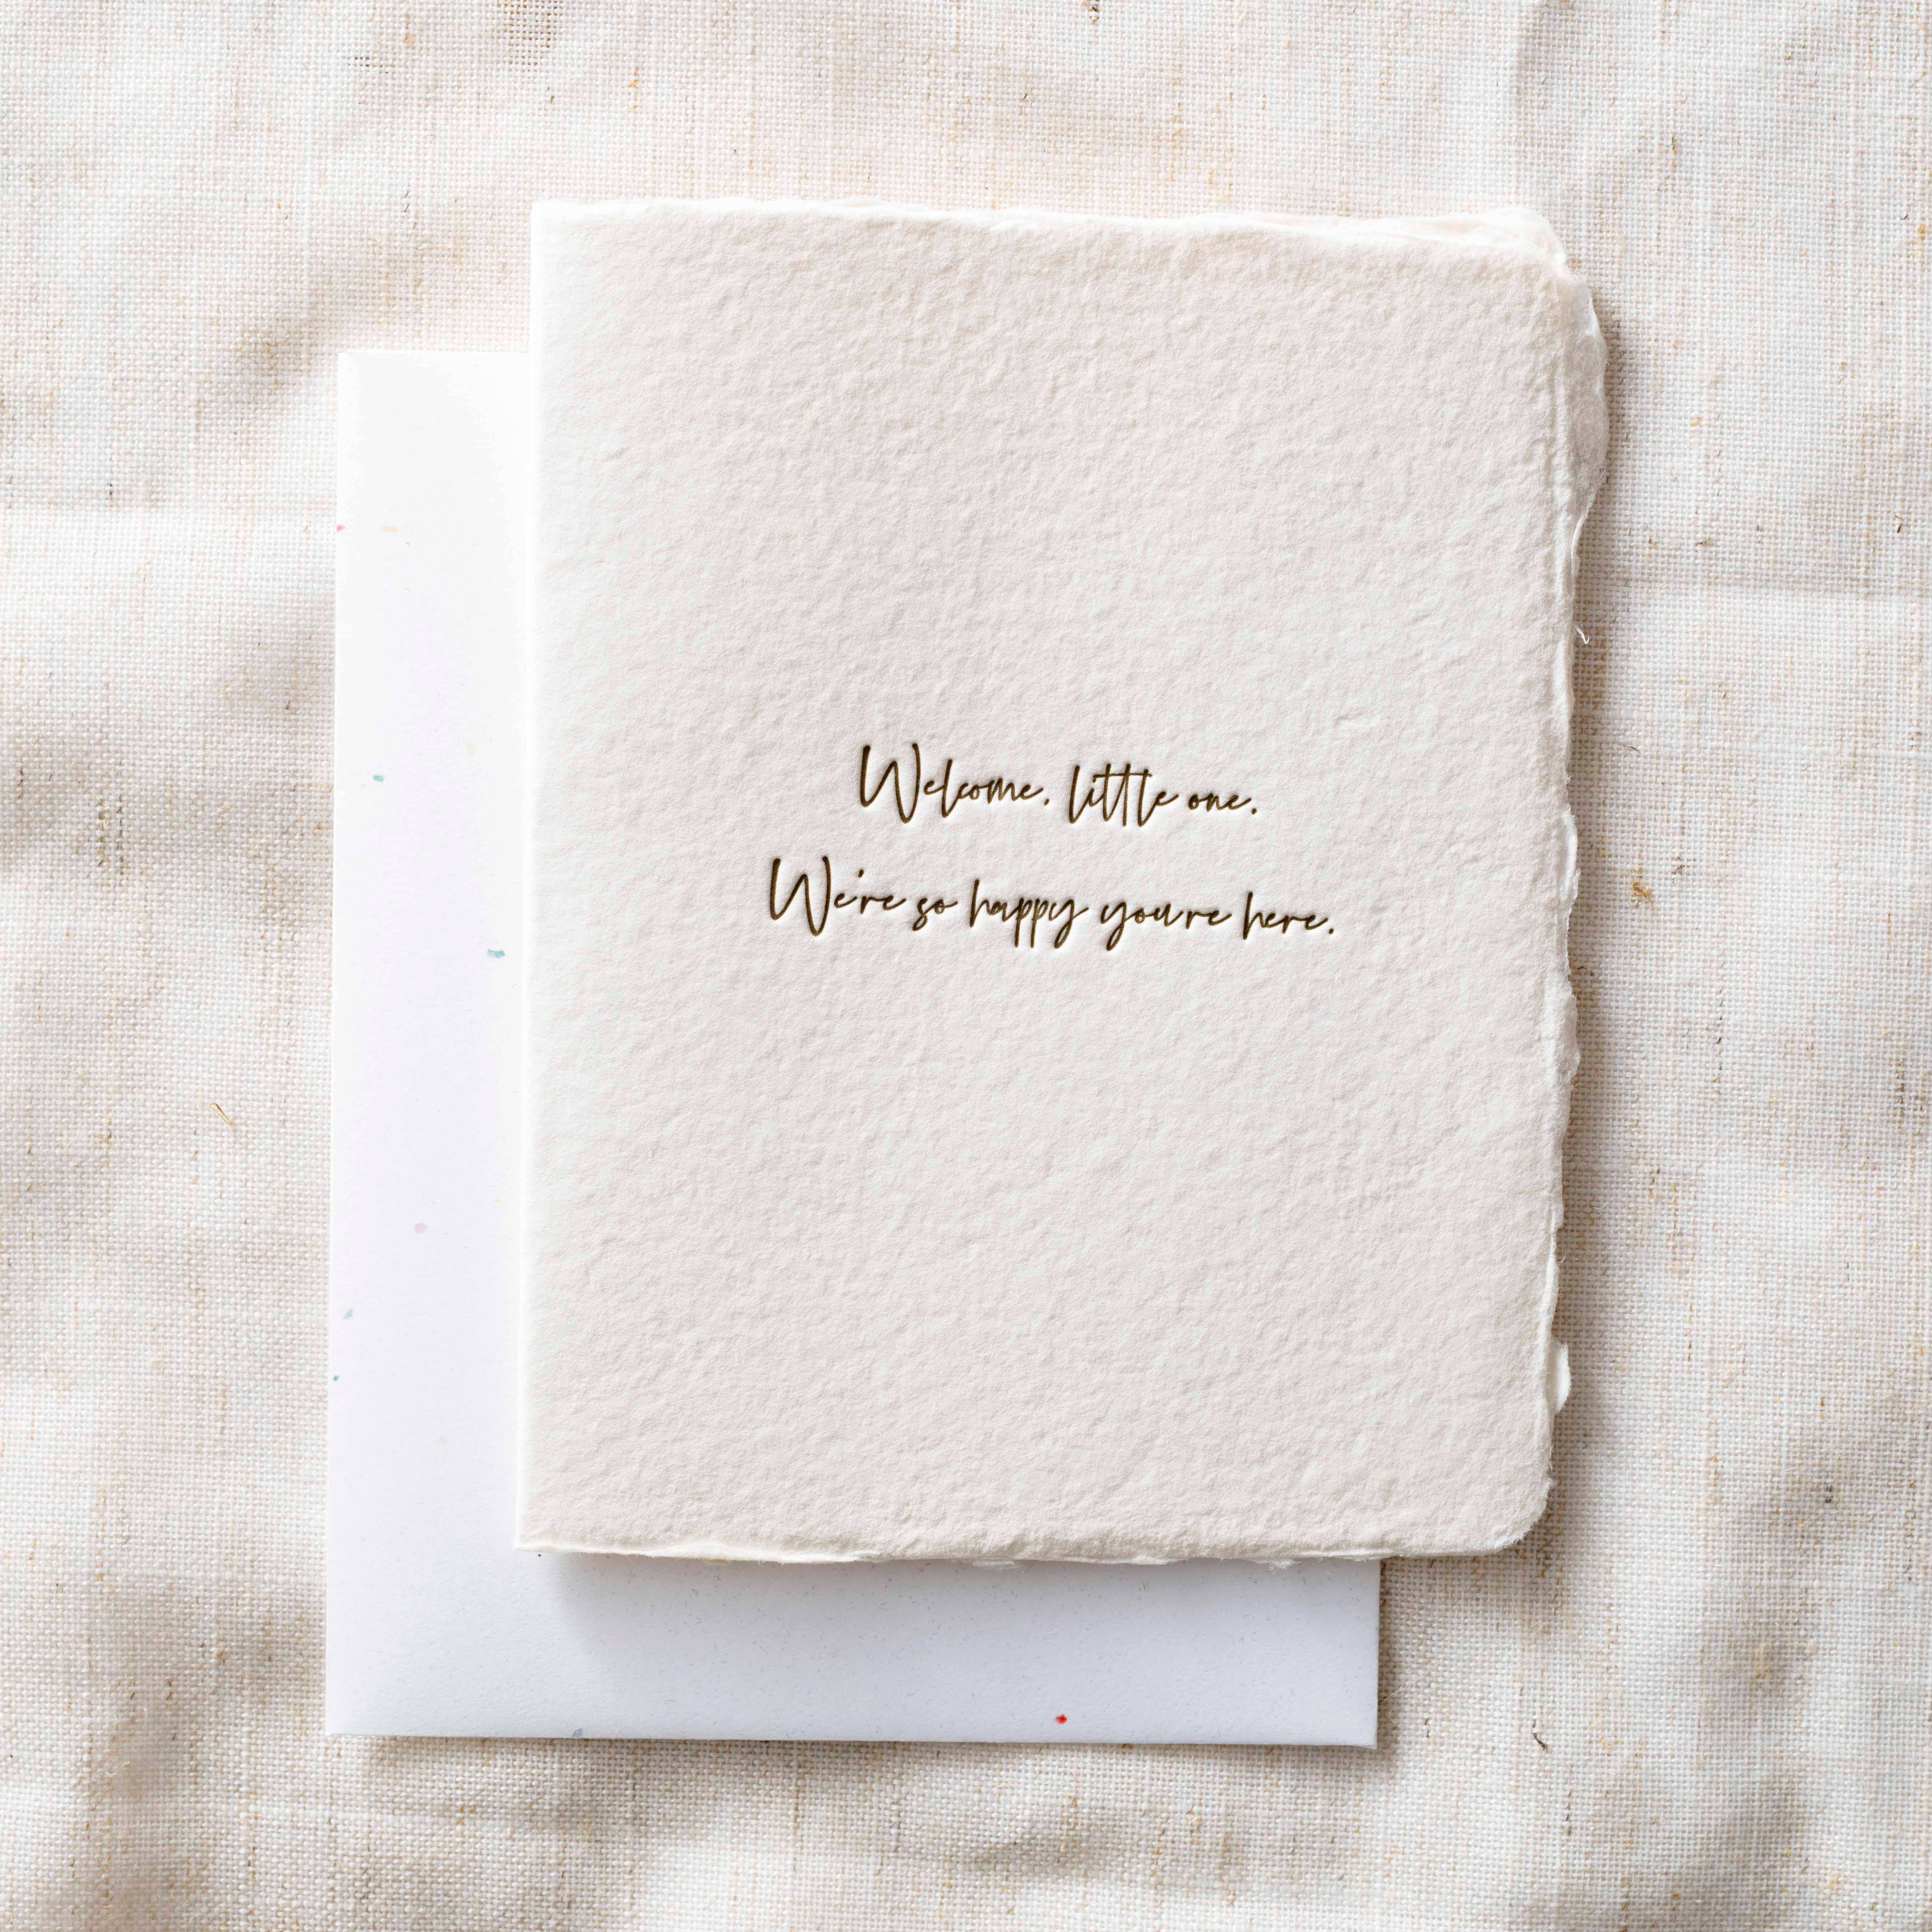 Welcome, little one.
We're so happy you're here.